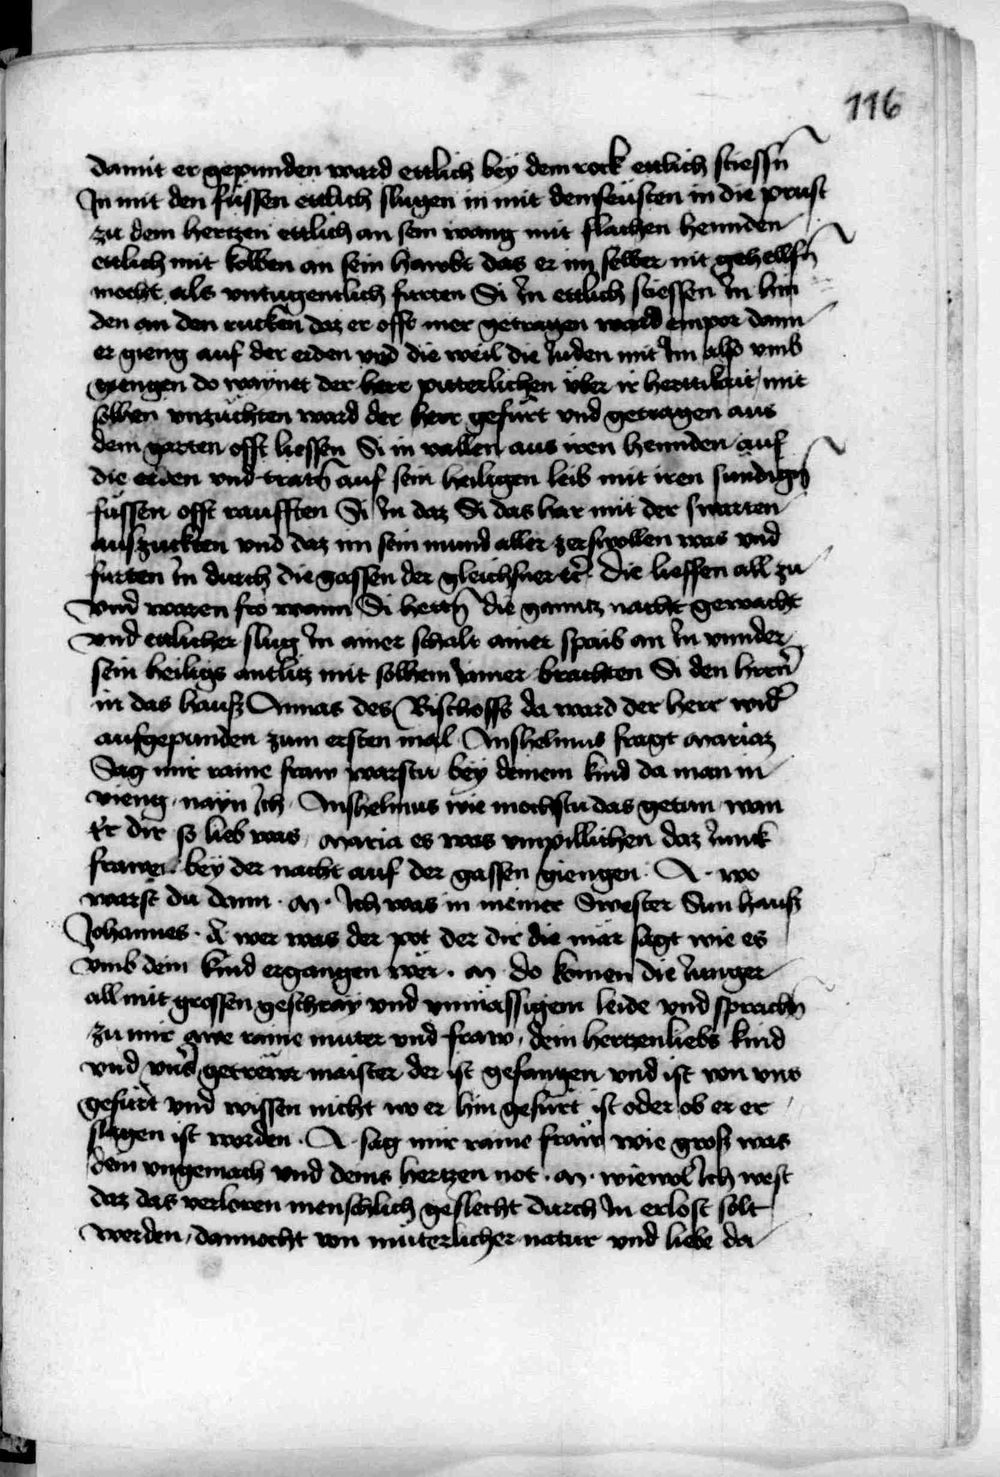 116
damit er gepunden ward ettlich bey dem rock ettlich stiessn̄
In mit den füssen ettlich slugen in mit den feüsten in die prust
zu dem hertzen ettlich an sein wang mit flachen hennden
ettlich mit kolben an sein hawbt das er im selber nit gehelffn̄
mocht als vntugentlich furten Si In ettlich stiessen In hin
den an den rucken daz er offt mer getragen ward empor dann
er gieng auf der erden vnd die weil die Iuden mit Im also vmb
giengen do waynet der herr piterlichen über ir herttikait mit
solhen vnzüchten ward der herr gefürt vnd getragen aus
dem garten offt liessen Si in vallen aus iren hennden auf
die erden vnd tratn̄ auf sein heiligen leib mit iren sündign̄
füssen offt raufften Si In daz Si das har mit der swarten
aufzuckten vnd daz im sein mund aller zerswollen was vnd
furten In durch die gassen der gleichsner etc̄ die lieffen all zu
vnd waren fro wann Si hettn̄ die ganntz nacht gewacht
vnd ettlicher slug In ainer schalt ainer spaib an In vnnder
sein heiligs antlitz mit solhem Iamer brachten Si den hern̄
in das hauß Annas des Bischoffs da ward der herr wid̄
aufgepunden zum ersten mal Anshelmus fragt mariaz
Sag mir raine fraw warstu bey deinem kind da man in
vieng nayn Ich Anshelmus wie mochstu das getun wan
Er dir so lieb was maria es was vnpillichen daz Iunck
frawen bey der nacht auf der gassen giengen A wo
warst du dann m Ich was in meiner Swester Sun hauß
Johannes A wer was der pot der dir die mär sagt wie es
vmb dein kind ergangen wer m do komen die Iunger
all mit grossen geschray vnd vnmässigem leide vnd sprachn̄
zu mir awe raine muter vnd fraw dein hertzenliebs kind
vnd vns̄ getrewr maister der ist gefangen vnd ist von vns
gefürt vnd wissen nicht wo er hin gefürt ist oder ob er er
slagen ist worden A sag mir raine fraw wie groß was
dein vngemach vnd deins hertzen not m wiewol Ich west
daz das verloren menschlich geslecht durch In erlost solt
werden dannocht von müterlicher natur vnd liebe da